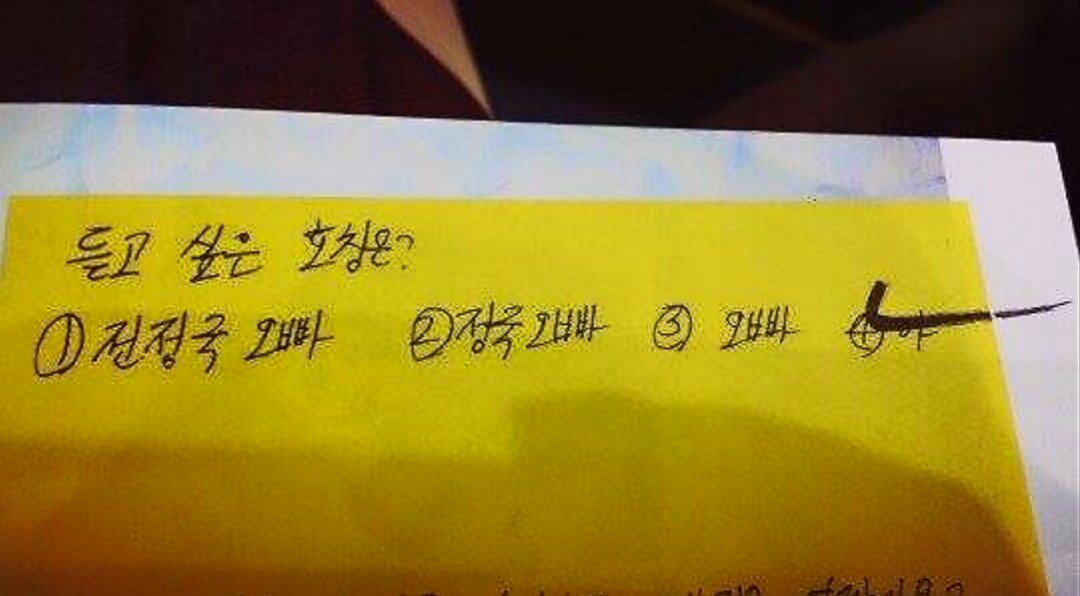 듣고 싶은 호칭은?
① 전정국 오빠 ② 정국오빠 ③ 오빠 ④ 야